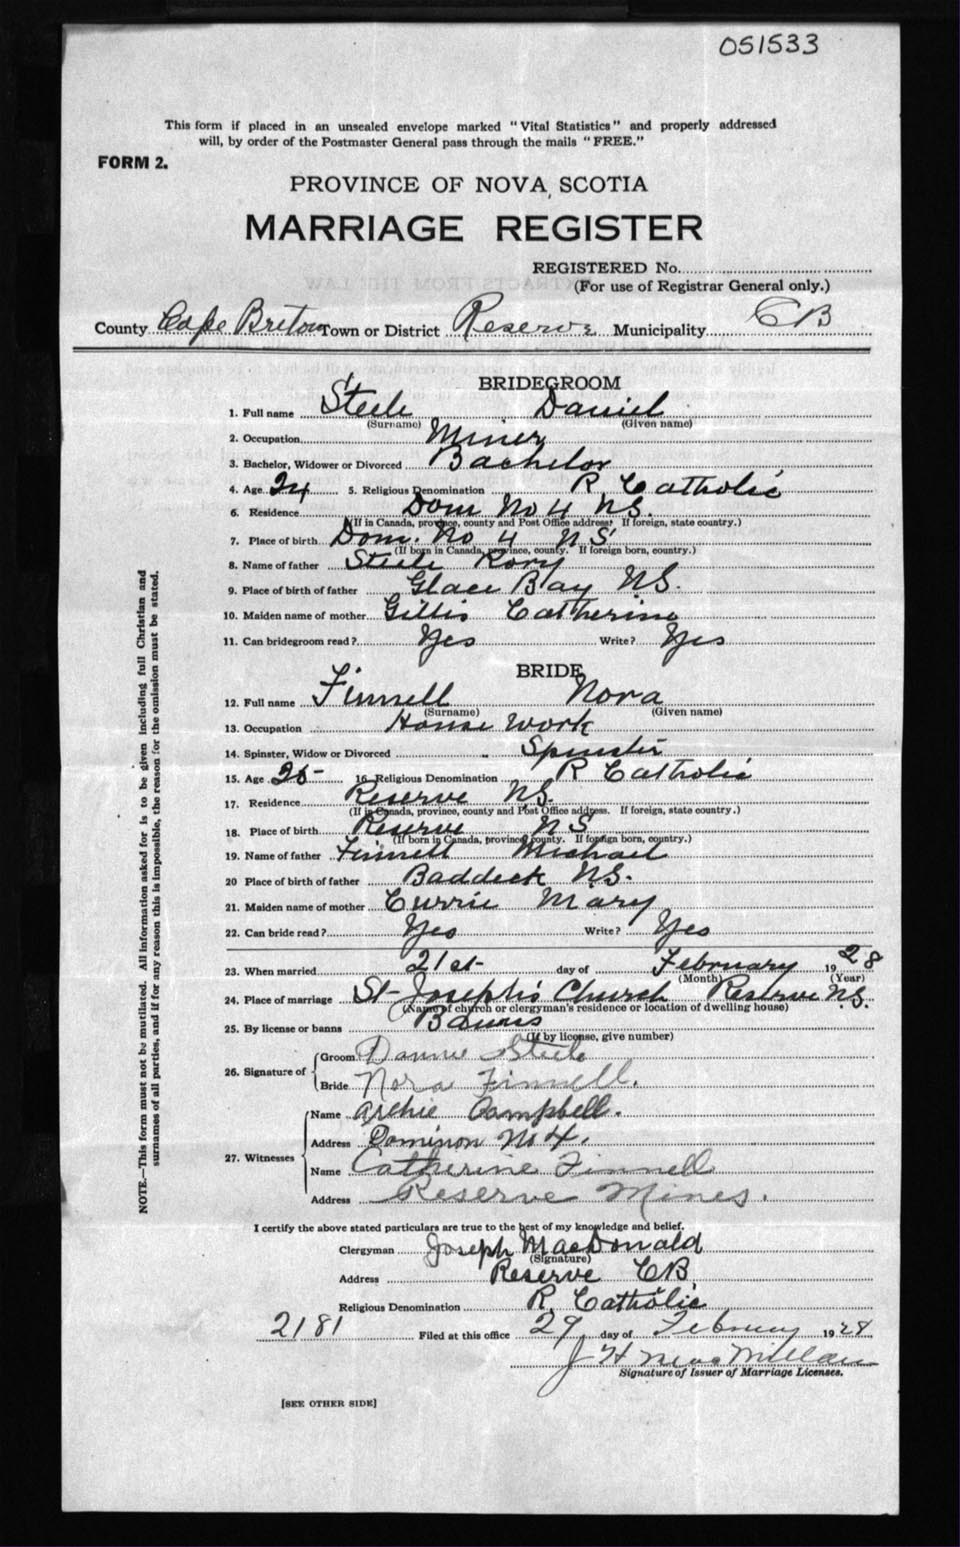 051533
This form if placed in an unsealed envelope marked "Vital Statistics" and properly addressed
will, by order of the Postmaster General pass through the mails "FREE."
FORM 2.
PROVINCE OF NOVA SCOTIA
MARRIAGE REGISTER
REGISTERED No.
(For use of Registrar General only.)
County Cape Breton Town or District Reserve Municipality CB
BRIDEGROOM
1. Full name Steele Daniel
(Surname) (Given name)
2. Occupation Miner
3. Bachelor, Widower or Divorced Bachelor
4. Age 24 5. Religious Denomination R Catholic
6. Residence Dom No 4 NS.
(If in Canada, province, county and Post Office address. If foreign, state country.)
7. Place of birth Dom. No 4 NS
(If born in Canada, province, county. If foreign born, country.)
8. Name of father Steele Rory
9. Place of birth of father Glace Bay NS.
10. Maiden name of mother Gillis Catherine
11. Can bridegroom read? Yes Write? Yes
BRIDE
12. Full name Finnell Nora
(Surname) (Given name)
13. Occupation House Work
14. Spinster, Widow or Divorced Spinster
15. Age 25 16. Religious Denomination R Catholic
17. Residence Reserve NS.
(If in Canada, province, county and Post Office address. If foreign, state country.)
18. Place of birth Reserve NS
(If born in Canada, province, county. If foreign born, country.)
19. Name of father Finnell Michael
20 Place of birth of father Baddeck NS.
21. Maiden name of mother Currie Mary
22. Can bride read? Yes Write? Yes
23. When married 21st day of February 1928
(Month) (Year)
24. Place of marriage St Joseph's Church Reserve N.S.
(Name of church or clergyman's residence or location of dwelling house)
25. By license or banns Banns
(If by license, give number)
26. Signature of Groom Dannie Steele
Bride Nora Finnell.
27. Witnesses Name Archie Campbell.
Address Dominion No 4.
Name Catherine Finnell
Address Reserve Mines.
I certify the above stated particulars are true to the best of my knowledge and belief.
Clergyman Joseph MacDonald
(Signature)
Address Reserve CB
Religious Denomination R. Catholic
2181 Filed at this office 29 day of February 1928
J H MacMillan
Signature of Issuer of Marriage Licenses.
[SEE OTHER SIDE]
NOTE.—This form must not be mutilated. All information asked for is to be given including full Christian and
surnames of all parties, and if for any reason this is impossible, the reason for the omission must be stated.